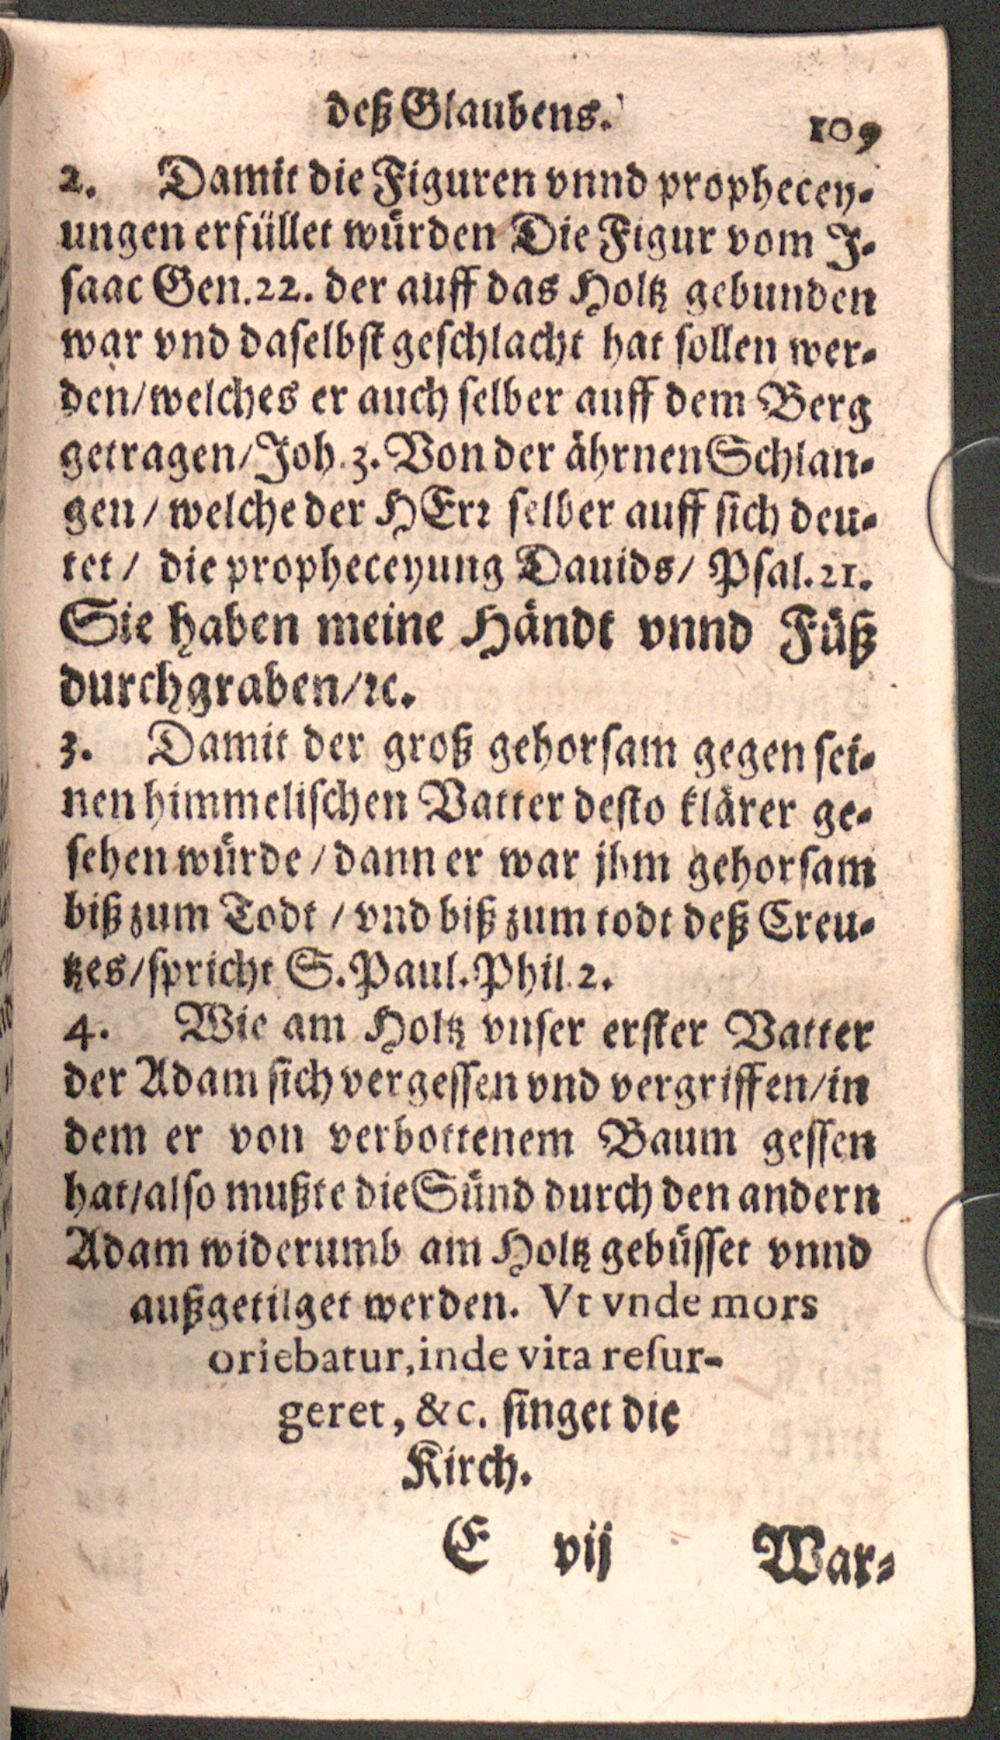 deß Glaubens. 109
2. Damit die Figuren vnnd prophecey-
ungen erfüllet würden Die Figur vom J-
saac Gen. 22. der auff das Holtz gebunden
war vnd daselbst geschlacht hat sollen wer-
den/welches er auch selber auff dem Berg
getragen/Joh. 3. Von der ährnen Schlan-
gen/ welche der HErr selber auff sich deu-
tet/ die propheceyung Dauids/ Psal. 21.
Sie haben meine Händt vnnd Füß
durchgraben/ꝛc.
3. Damit der groß gehorsam gegen sei-
nen himmelischen Vatter desto klärer ge-
sehen würde/dann er war jhm gehorsam
biß zum Todt/vnd biß zum todt deß Creu-
tzes/spricht S. Paul. Phil. 2.
4. Wie am Holtz vnser erster Vatter
der Adam sich vergessen vnd vergriffen/in
dem er von verbottenem Baum gessen
hat/also mußte die Sünd durch den andern
Adam widerumb am Holtz gebüsset vnnd
außgetilget werden. Vt vnde mors
oriebatur, inde vita resur-
geret, &c. singet die
Kirch.
E vij War-